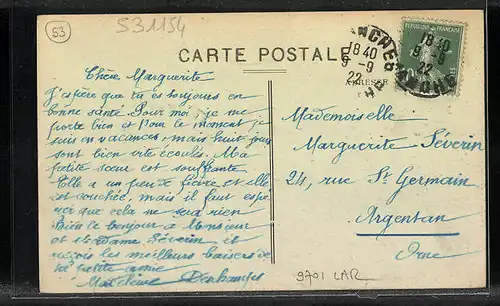 53
S31154
CARTE POSTALE
ADRESSE
18 40
9 - 9
22
18 40
9 - 9
22
Chère Marguerite
J'espère que tu es toujours en
bonne santé. Pour moi, je me
porte bien et pour le moment je
suis en vacances, mais huit jours
sont bien vite écoulés. Ma
petite sœur est souffrante.
Elle a un peu de fièvre et elle
est couchée, mais il faut espé-
rer que cela ne sera rien
Bien le bonjour à Monsieur
et et Madame Séverin et
reçois les meilleurs baisers de
ta petite amie
Madeleine
Mademoiselle
Marguerite Séverin
24, rue St Germain
Argentan
Orne
9701 LAR